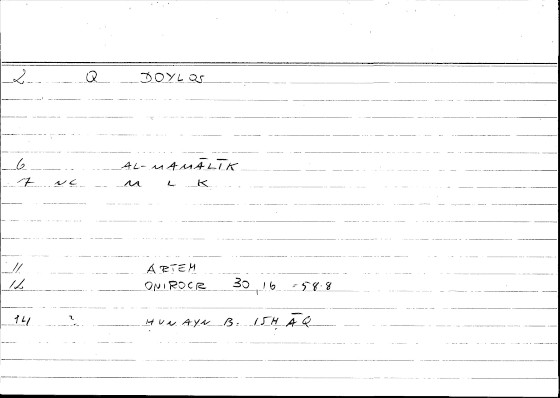 2 Q DOYLOS
6 AL-MAMĀLĪK
7 NC M L K
11 ARTEM
12 ONIROCR 30,16 -58.8
14 ? ḤUNAYN B. ISḤĀQ